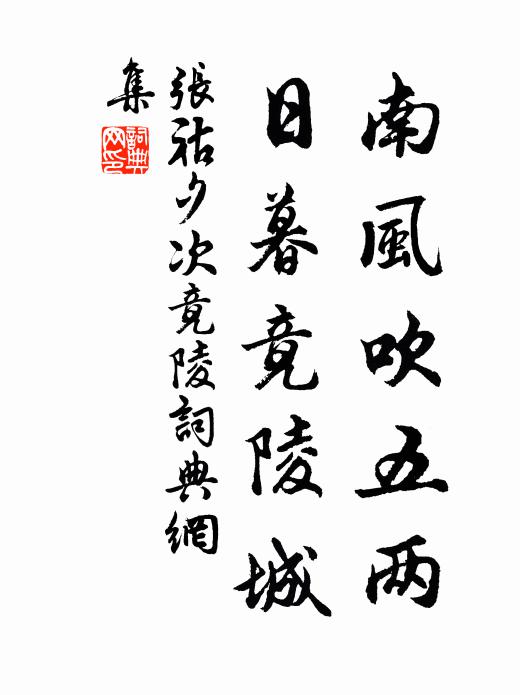 南風吹五两
日暮竟陵城
張祜夕次竟陵詞典網
集
詞典網印